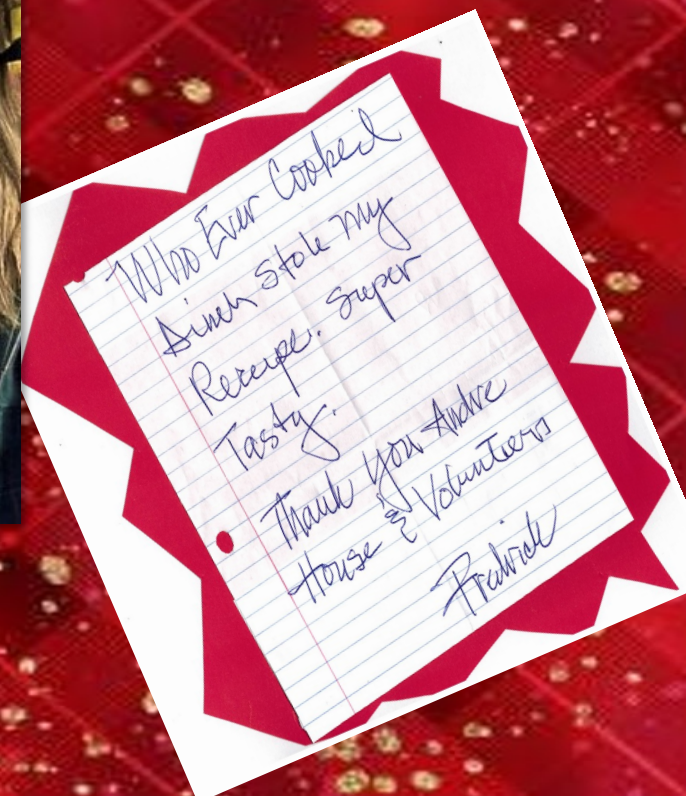 Who Ever Cooked
Dinner Stole My
Receipe. Super
Tasty.
Thank You Andre
House & Volunteers
Fredrick